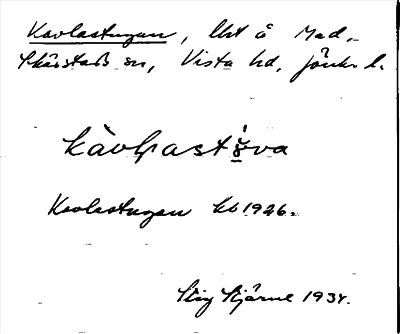 Kavlastugan, lht å Mad,
Skärstads sn, Vista hd, Jönk. l.
kàvlastꝏ̀va
Kavlastugan kb 1926.
Stig Stjärne 1934.